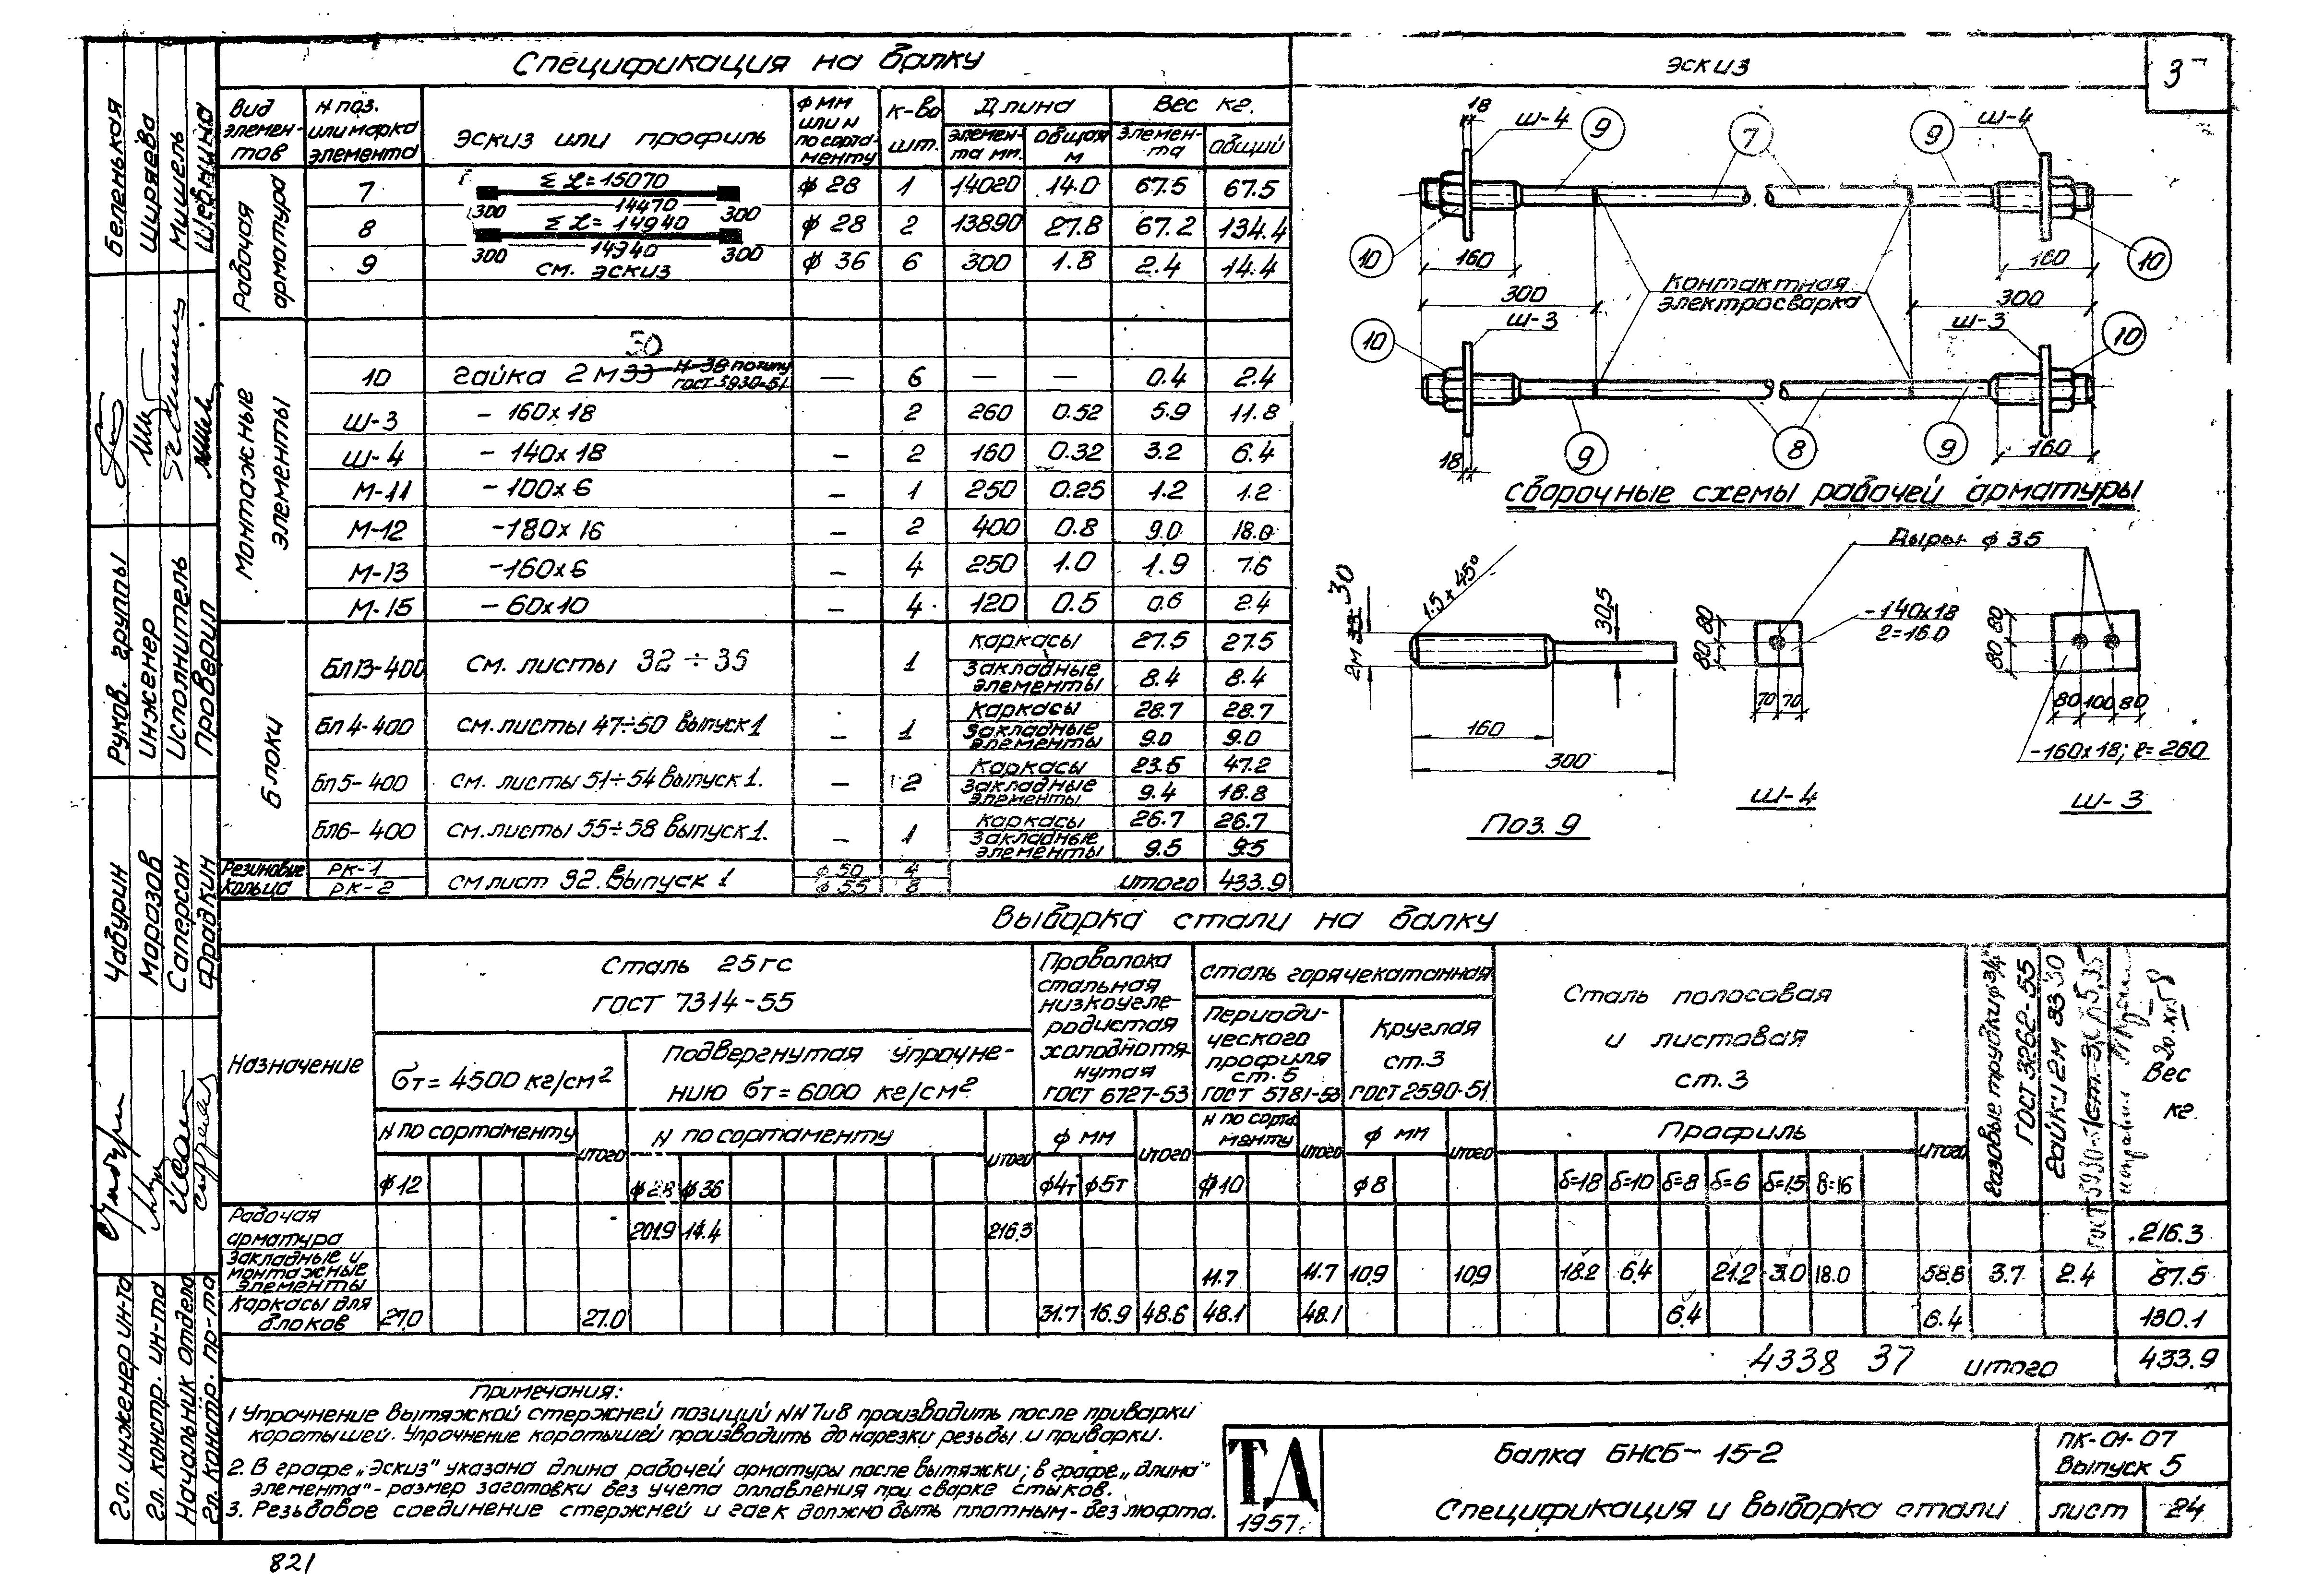 Спецификация на балку
Вид элемен-тов | N поз. или марка элемента | Эскиз или профиль | ф мм или N по сорта-менту | К-во шт. | Длина элемен-та мм. | Длина общая м | Вес кг. Элемен-та | Вес кг. общий
Рабочая арматура
7 | Σℒ=15070 300 14470 300 | ф 28 | 1 | 14020 | 14.0 | 67.5 | 67.5
8 | Σℒ=14940 300 14940 300 | ф 28 | 2 | 13890 | 27.8 | 67.2 | 134.4
9 | см. эскиз | ф 36 | 6 | 300 | 1.8 | 2.4 | 14.4
Монтажные элементы
30
10 | гайка 2М33 Н-38 по типу ГОСТ 5930-51 | — | 6 | — | — | 0.4 | 2.4
Ш-3 | - 160х18 | 2 | 260 | 0.52 | 5.9 | 11.8
Ш-4 | - 140х18 | — | 2 | 160 | 0.32 | 3.2 | 6.4
М-11 | - 100х6 | — | 1 | 250 | 0.25 | 1.2 | 1.2
М-12 | -180х16 | — | 2 | 400 | 0.8 | 9.0 | 18.0
М-13 | -160х6 | — | 4 | 250 | 1.0 | 1.9 | 7.6
М-15 | - 60х10 | — | 4 | 120 | 0.5 | 0.6 | 2.4
Блоки
Бл13-400 | см. листы 32÷35 | 1 | Каркасы | 27.5 | 27.5
Закладные элементы | 8.4 | 8.4
Бл4-400 | см. листы 47÷50 выпуск 1 | — | 1 | Каркасы | 28.7 | 28.7
Закладные элементы | 9.0 | 9.0
Бл5-400 | см. листы 51÷54 выпуск 1. | — | 2 | Каркасы | 23.6 | 47.2
Закладные элементы | 9.4 | 18.8
Бл6-400 | см. листы 55÷58 выпуск 1. | — | 1 | Каркасы | 26.7 | 26.7
Закладные элементы | 9.5 | 9.5
Резиновые кольца | РК-1 | см лист 92. Выпуск 1 | ф 50 | 4
РК-2 | ф 55 | 8 | итого | 433.9
Эскиз
3
18 Ш-4 9 7 9 Ш-4
10 160 160 10
300 Контактная электросварка 300
10 Ш-3 Ш-3 10
18 9 8 9 160
Сварочные схемы рабочей арматуры
Дыры ф 35
2м 33 30 1.5х45° 30,5
160
300
Поз. 9
80 80 -140х18
ℓ=160
70 70
Ш-4
80 80
80 100 80
-160х18; ℓ=260
Ш-3
Выборка стали на балку
Назначение
Сталь 25гс
ГОСТ 7314-55
бт=4500 кг/см²
Подвергнутая упрочне-
нию бт=6000 кг/см²
Проволока стальная низкоугле-родистая холоднотя-нутая ГОСТ 6727-53
Сталь горячекатанная
Периоди-ческого профиля ст. 5 ГОСТ 5781-53
Круглая ст.3 ГОСТ 2590-51
Сталь полосовая
и листовая
ст.3
Газовые трубки ф 3/4" ГОСТ 3262-55
Гайки 2м 33 30
ГОСТ 5930-51
Вес кг
N по сортаменту | итого | N по сортаменту | итого | ф мм | итого | N по сорта-менту | итого | ф мм | итого | Профиль | итого
ф12 | ф28 | ф36 | ф4т | ф5т | ф10 | ф8 | δ=18 | δ=10 | δ=8 | δ=6 | δ=15 | δ=16
Рабочая арматура | 201.9 | 14.4 | 216.3 | 216.3
Закладные и монтажные элементы | 11.7 | 11.7 | 10.9 | 10.9 | 18.2 | 6.4 | 21.2 | 3.0 | 18.0 | 58.8 | 3.7 | 2.4 | 87.5
Каркасы для блоков | 27.0 | 27.0 | 31.7 | 16.9 | 48.6 | 48.1 | 48.1 | 6.4 | 6.4 | 130.1
4338 37 итого 433.9
Примечания:
1 Упрочнение вытяжкой стержней позиций NN 7 и 8 производить после приварки
коротышей. Упрочнение коротышей производить до нарезки резьбы и приварки.
2. В графе „Эскиз" указана длина рабочей арматуры после вытяжки; в графе „длина
элемента" - размер заготовки без учета оплавления при сварке стыков.
3. Резьбовое соединение стержней и гаек должно быть плотным - без люфта.
ТА
1957г.
Балка БНСБ-15-2
Спецификация и выборка стали
ПК-01-07
Выпуск 5
лист 24
821
Беленькая
Ширяева
Мишель
Шевнина
Руков. группы
Инженер
Исполнитель
Проверил
Чабурин
Маразов
Саперсон
Фрадкин
Гл. инженер ин-та
Гл. констр. ин-та
Начальник отдела
Гл. констр. пр-та